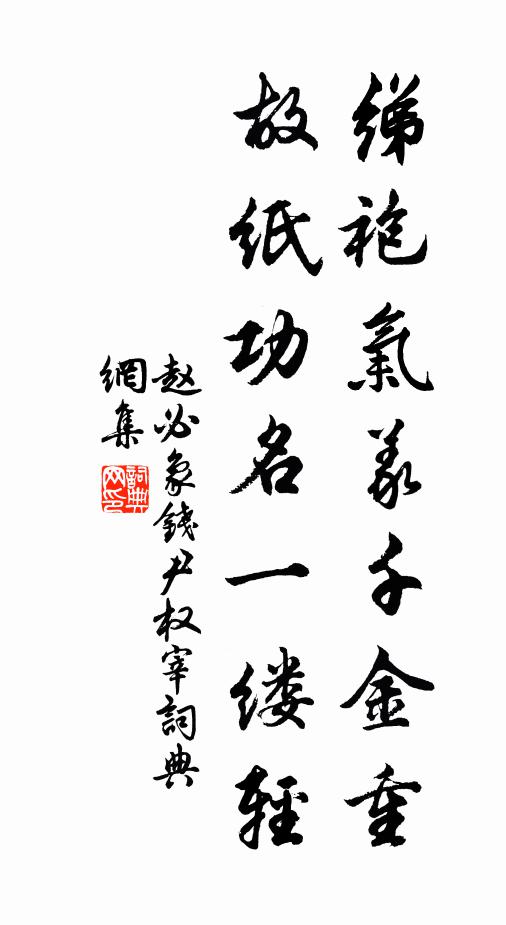 綈袍氣義千金重
故紙功名一缕輕
赵必象錢尹权宰詞典
網集
詞典
网印